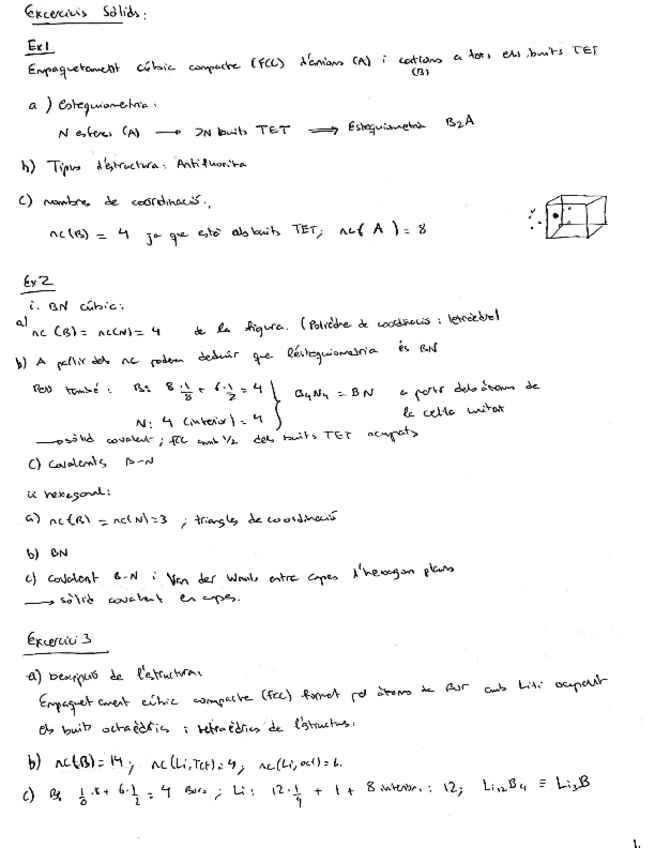 Excercicis Sòlids:
Ex1
Empaquetament cúbic compacte (FCC) d'anions (A) i cations a tots els buits TET
(B)
a) Estequiometria:
N esferes (A) → 2N buits TET ⟹ Estequiometria B₂A
b) Tipus d'estructura: Antifluorita
c) nombres de coordinació:
nc(B) = 4 ja que està als buits TET; nc(A) = 8
Ex2
i. BN cúbic:
a) nc(B) = nc(N) = 4 de la figura. (Políedre de coordinació: tetràedre)
b) A partir dels nc podem deduir que l'estequiometria és BN
Però també: B: 8·1/8 + 6·1/2 = 4 } B₄N₄ = BN a partir dels àtoms de
N: 4 (interior) = 4 la cel·la unitat
→ sòlid covalent; fcc amb 1/2 dels buits TET ocupats
c) Covalents B-N
ii hexagonal:
a) nc(B) = nc(N) = 3 ; triangles de coordinació
b) BN
c) covalent B-N i Van der Waals entre capes d'hexagon plans
→ sòlid covalent en capes.
Excercici 3
a) Descripció de l'estructura:
Empaquetament cúbic compacte (fcc) format pel àtoms de Bor amb Liti ocupant
els buits octaèdrics i tetraèdrics de l'estructura.
b) nc(B) = 14; nc(Li,Tet) = 4; nc(Li,oct) = 6.
c) B: 1/8·8 + 6·1/2 = 4 Bors; Li: 12·1/4 + 1 + 8 interiors: 12; Li₁₂B₄ ≡ Li₃B
1.